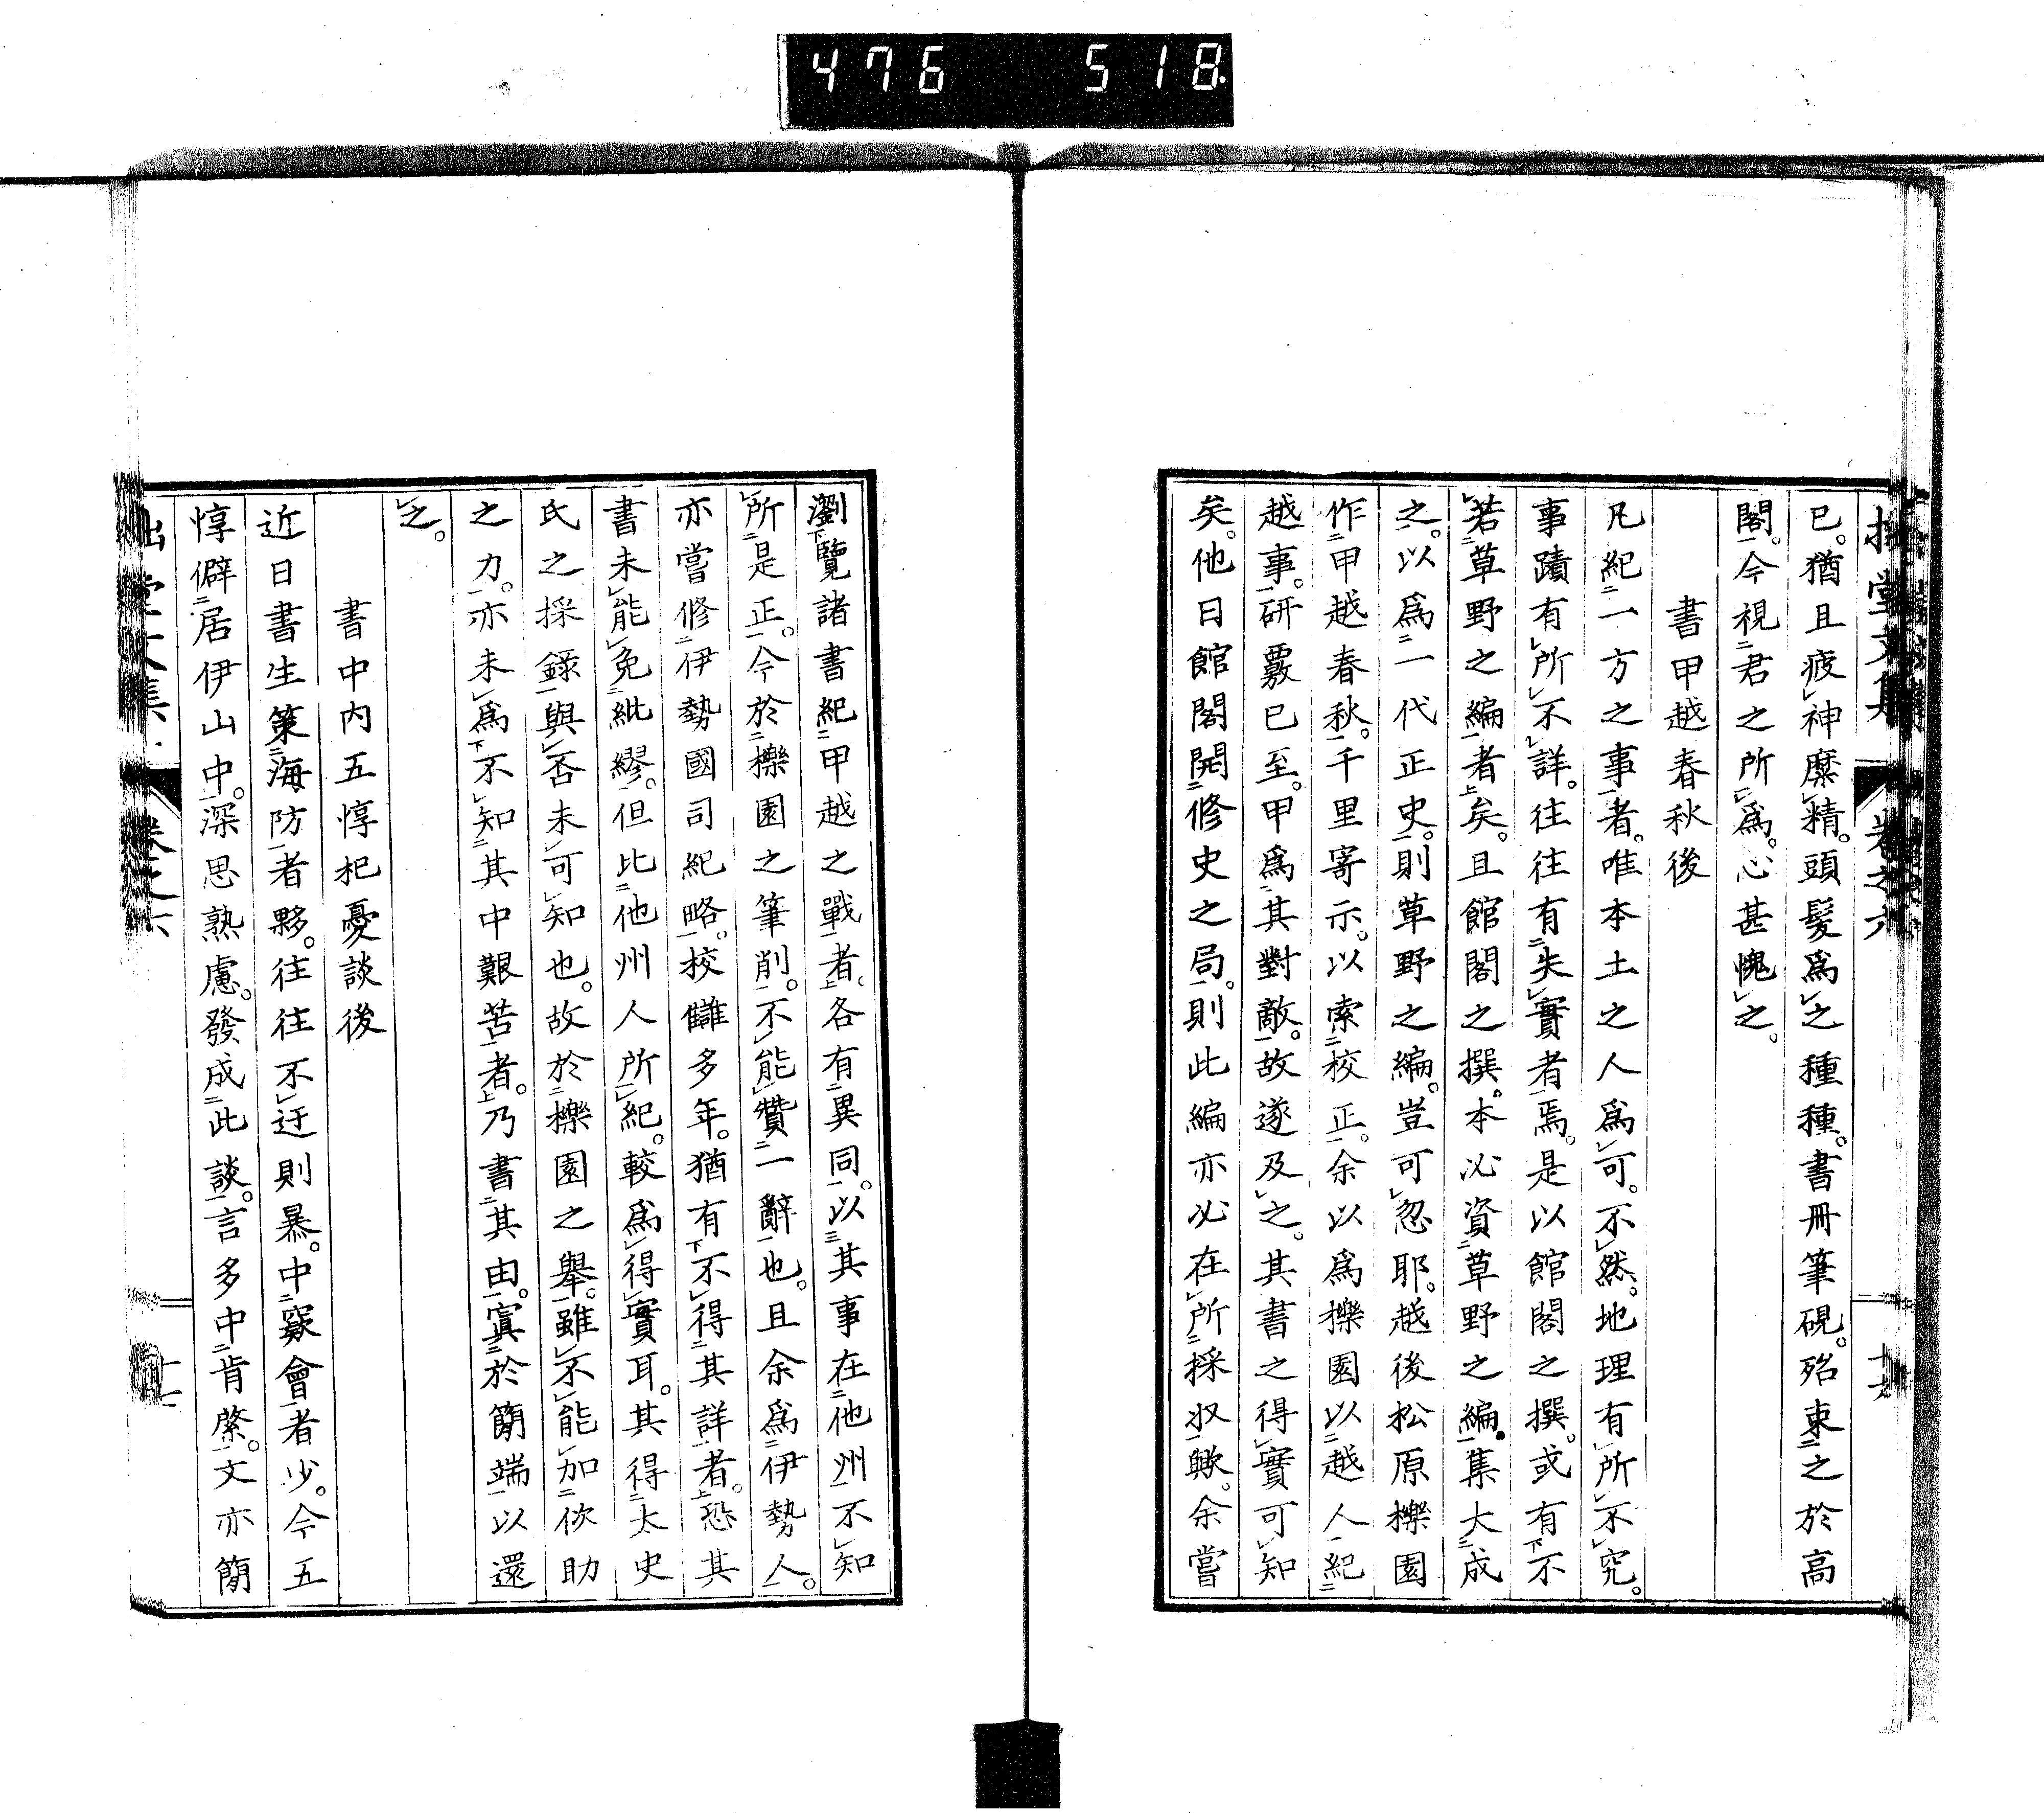 476 518
拙堂文集 卷之六 十九
已。猶且疲神糜精。頭髮爲之種種。書冊筆硯。殆束之於高
閣。今視君之所爲。心甚愧之。
書甲越春秋後
凡紀一方之事者。唯本土之人爲可。不然。地理有所不究。
事蹟有所不詳。往往有失實者焉。是以館閣之撰。或有不
若草野之編者矣。且館閣之撰。本必資草野之編。集大成
之。以爲一代正史。則草野之編。豈可忽耶。越後松原櫟園
作甲越春秋。千里寄示。以索校正。余以爲櫟園以越人紀
越事。研覈已至。甲爲其對敵。故遂及之。其書之得實可知
矣。他日館閣開修史之局。則此編亦必在所採収歟。余嘗
瀏覽諸書紀甲越之戰者。各有異同。以其事在他州不知
所是正。今於櫟園之筆削。不能贊一辭也。且余爲伊勢人。
亦嘗修伊勢國司紀略。校讎多年。猶有不得其詳者。恐其
書未能免紕繆。但比他州人所紀。較爲得實耳。其得太史
氏之採錄與否未可知也。故於櫟園之舉。雖不能加佽助
之力。亦未爲不知其中艱苦者。乃書其由。寘於簡端以還
之。
書中内五惇杞憂談後
近日書生策海防者夥。往往不迂則暴。中窾會者少。今五
惇僻居伊山中。深思熟慮。發成此談。言多中肯綮。文亦簡
拙堂文集 卷之六